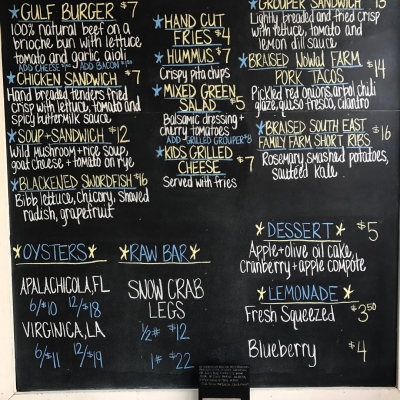 GULF BURGER $7
100% natural beef on a
brioche bun with lettuce
tomato and garlic aioli
ADD CHEESE ADD BACON
CHICKEN SANDWICH $7
Hand breaded tenders fried
crisp with lettuce, tomato and
spicy buttermilk sauce
SOUP+SANDWICH $12
Wild mushroom+rice soup,
goat cheese+tomato on rye
BLACKENED SWORDFISH $16
Bibb lettuce, chicory, shaved
radish, grapefruit
HAND CUT
FRIES $4
HUMMUS $7
Crispy pita chips
MIXED GREEN
SALAD $5
Balsamic dressing+
cherry tomatoes
ADD-GRILLED GROUPER $8
KIDS GRILLED
CHEESE $7
Served with fries
GROUPER SANDWICH
Lightly breaded and fried crisp
with lettuce, tomato and
lemon dill sauce
BRAISED NOWLAN FARM
PORK TACOS $14
Pickled red onions, arbol chili
glaze, queso fresco, cilantro
BRAISED SOUTH EAST
FAMILY FARM SHORT RIBS $16
Rosemary smashed potatoes,
sauteed kale
OYSTERS
APALACHICOLA, FL
6/$10 12/$18
VIRGINICA, LA
6/$11 12/$19
RAW BAR
SNOW CRAB
LEGS
1/2# $12
1# $22
DESSERT $5
Apple+olive oil cake,
cranberry+apple compote
LEMONADE
Fresh Squeezed $3.50
Blueberry $4